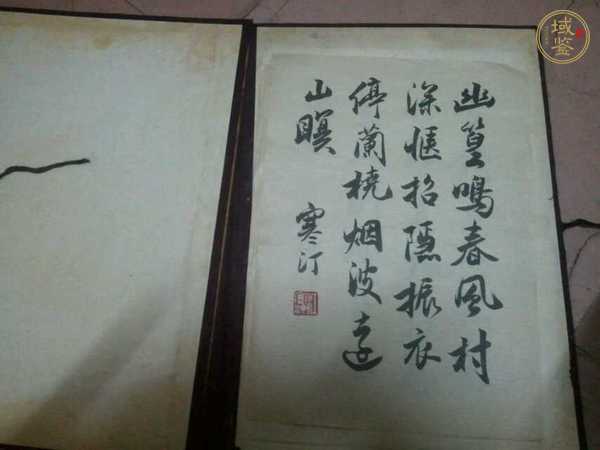 幽篁鳴春風村
深惬招隱振衣
停蘭橈烟波遠
山暝
寒汀
域鉴